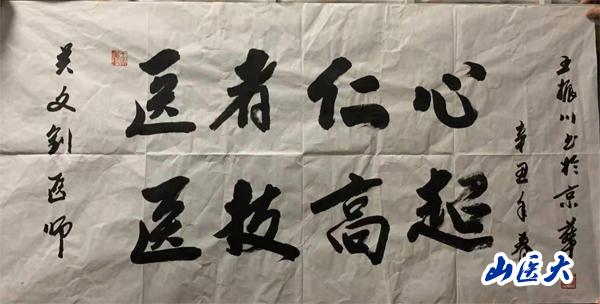 吴文钊医师
医者仁心
医技高超
辛丑年春
王振川书於京華
山医大